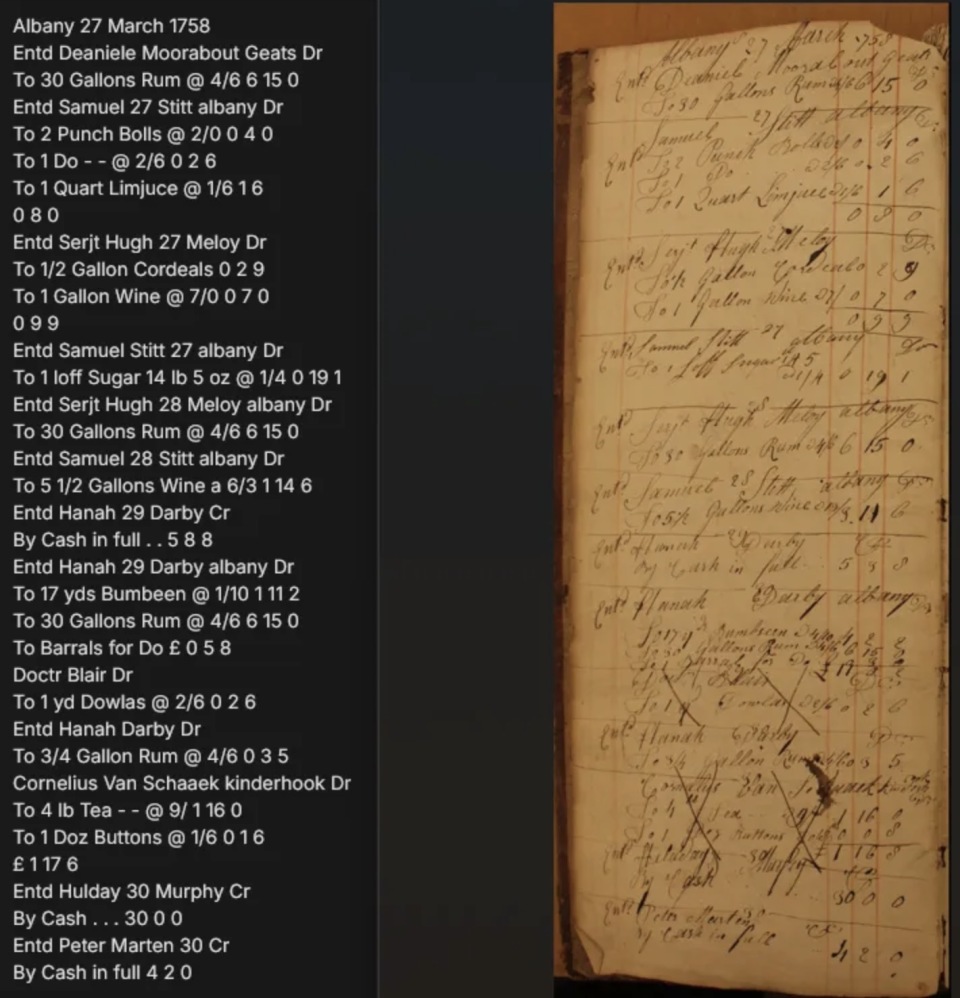 Albany 27 March 1758
Entd Deaniele Moorabout Geats Dr
To 30 Gallons Rum @ 4/6 6 15 0
Entd Samuel 27 Stitt albany Dr
To 2 Punch Bolls @ 2/0 0 4 0
To 1 Do - - @ 2/6 0 2 6
To 1 Quart Limjuce @ 1/6 1 6
0 8 0
Entd Serjt Hugh 27 Meloy Dr
To 1/2 Gallon Cordeals 0 2 9
To 1 Gallon Wine @ 7/0 0 7 0
0 9 9
Entd Samuel Stitt 27 albany Dr
To 1 loff Sugar 14 lb 5 oz @ 1/4 0 19 1
Entd Serjt Hugh 28 Meloy albany Dr
To 30 Gallons Rum @ 4/6 6 15 0
Entd Samuel 28 Stitt albany Dr
To 5 1/2 Gallons Wine a 6/3 1 14 6
Entd Hanah 29 Darby Cr
By Cash in full . . 5 8 8
Entd Hanah 29 Darby albany Dr
To 17 yds Bumbeen @ 1/10 1 11 2
To 30 Gallons Rum @ 4/6 6 15 0
To Barrals for Do £ 0 5 8
Doctr Blair Dr
To 1 yd Dowlas @ 2/6 0 2 6
Entd Hanah Darby Dr
To 3/4 Gallon Rum @ 4/6 0 3 5
Cornelius Van Schaaek kinderhook Dr
To 4 lb Tea - - @ 9/ 1 16 0
To 1 Doz Buttons @ 1/6 0 1 6
£ 1 17 6
Entd Hulday 30 Murphy Cr
By Cash . . . 30 0 0
Entd Peter Marten 30 Cr
By Cash in full 4 2 0
Albany 27 March 1758
Entd Deaniele Moorabout Geats
To 30 Gallons Rum 4/6 6 15 0
Samuel 27 Stitt albany Dr
Entd To 2 Punch Bolls 0 4 0
To 1 Do 2/6 0 2 6
To 1 Quart Limjuce 1/6 1 6
0 8 0
Entd Serjt Hugh 27 Meloy Dr
Gallon Cordeals 0 2 9
To 1 Gallon Wine 7/ 0 7 0
0 9 9
Entd Samuel Stitt 27 albany Dr
To 1 loff Sugar
1/4 0 19 1
Entd Serjt Hugh 28 Meloy albany Dr
To 30 Gallons Rum 4/6 6 15 0
Entd Samuel 28 Stitt albany Dr
To 5½ Gallons Wine
Entd Hanah Darby Cr
By Cash in full 5 8 8
Entd Hanah Darby albany Dr
To 17 yds Bumbeen
To 30 Gallons Rum 6 15
for Do
To 1 Dowlas 2/6 0 2 6
Entd Hanah Darby Dr
To 3/4 Gallon Rum 4/6 0 3 5
Cornelius Van
To 4 Tea 9/ 1 16 0
To 1 Buttons
£ 1 16 8
Entd Hulday 30 Murphy
By Cash 30 0 0
Entd Peter Marten 30 Cr
By Cash in full
4 2 0